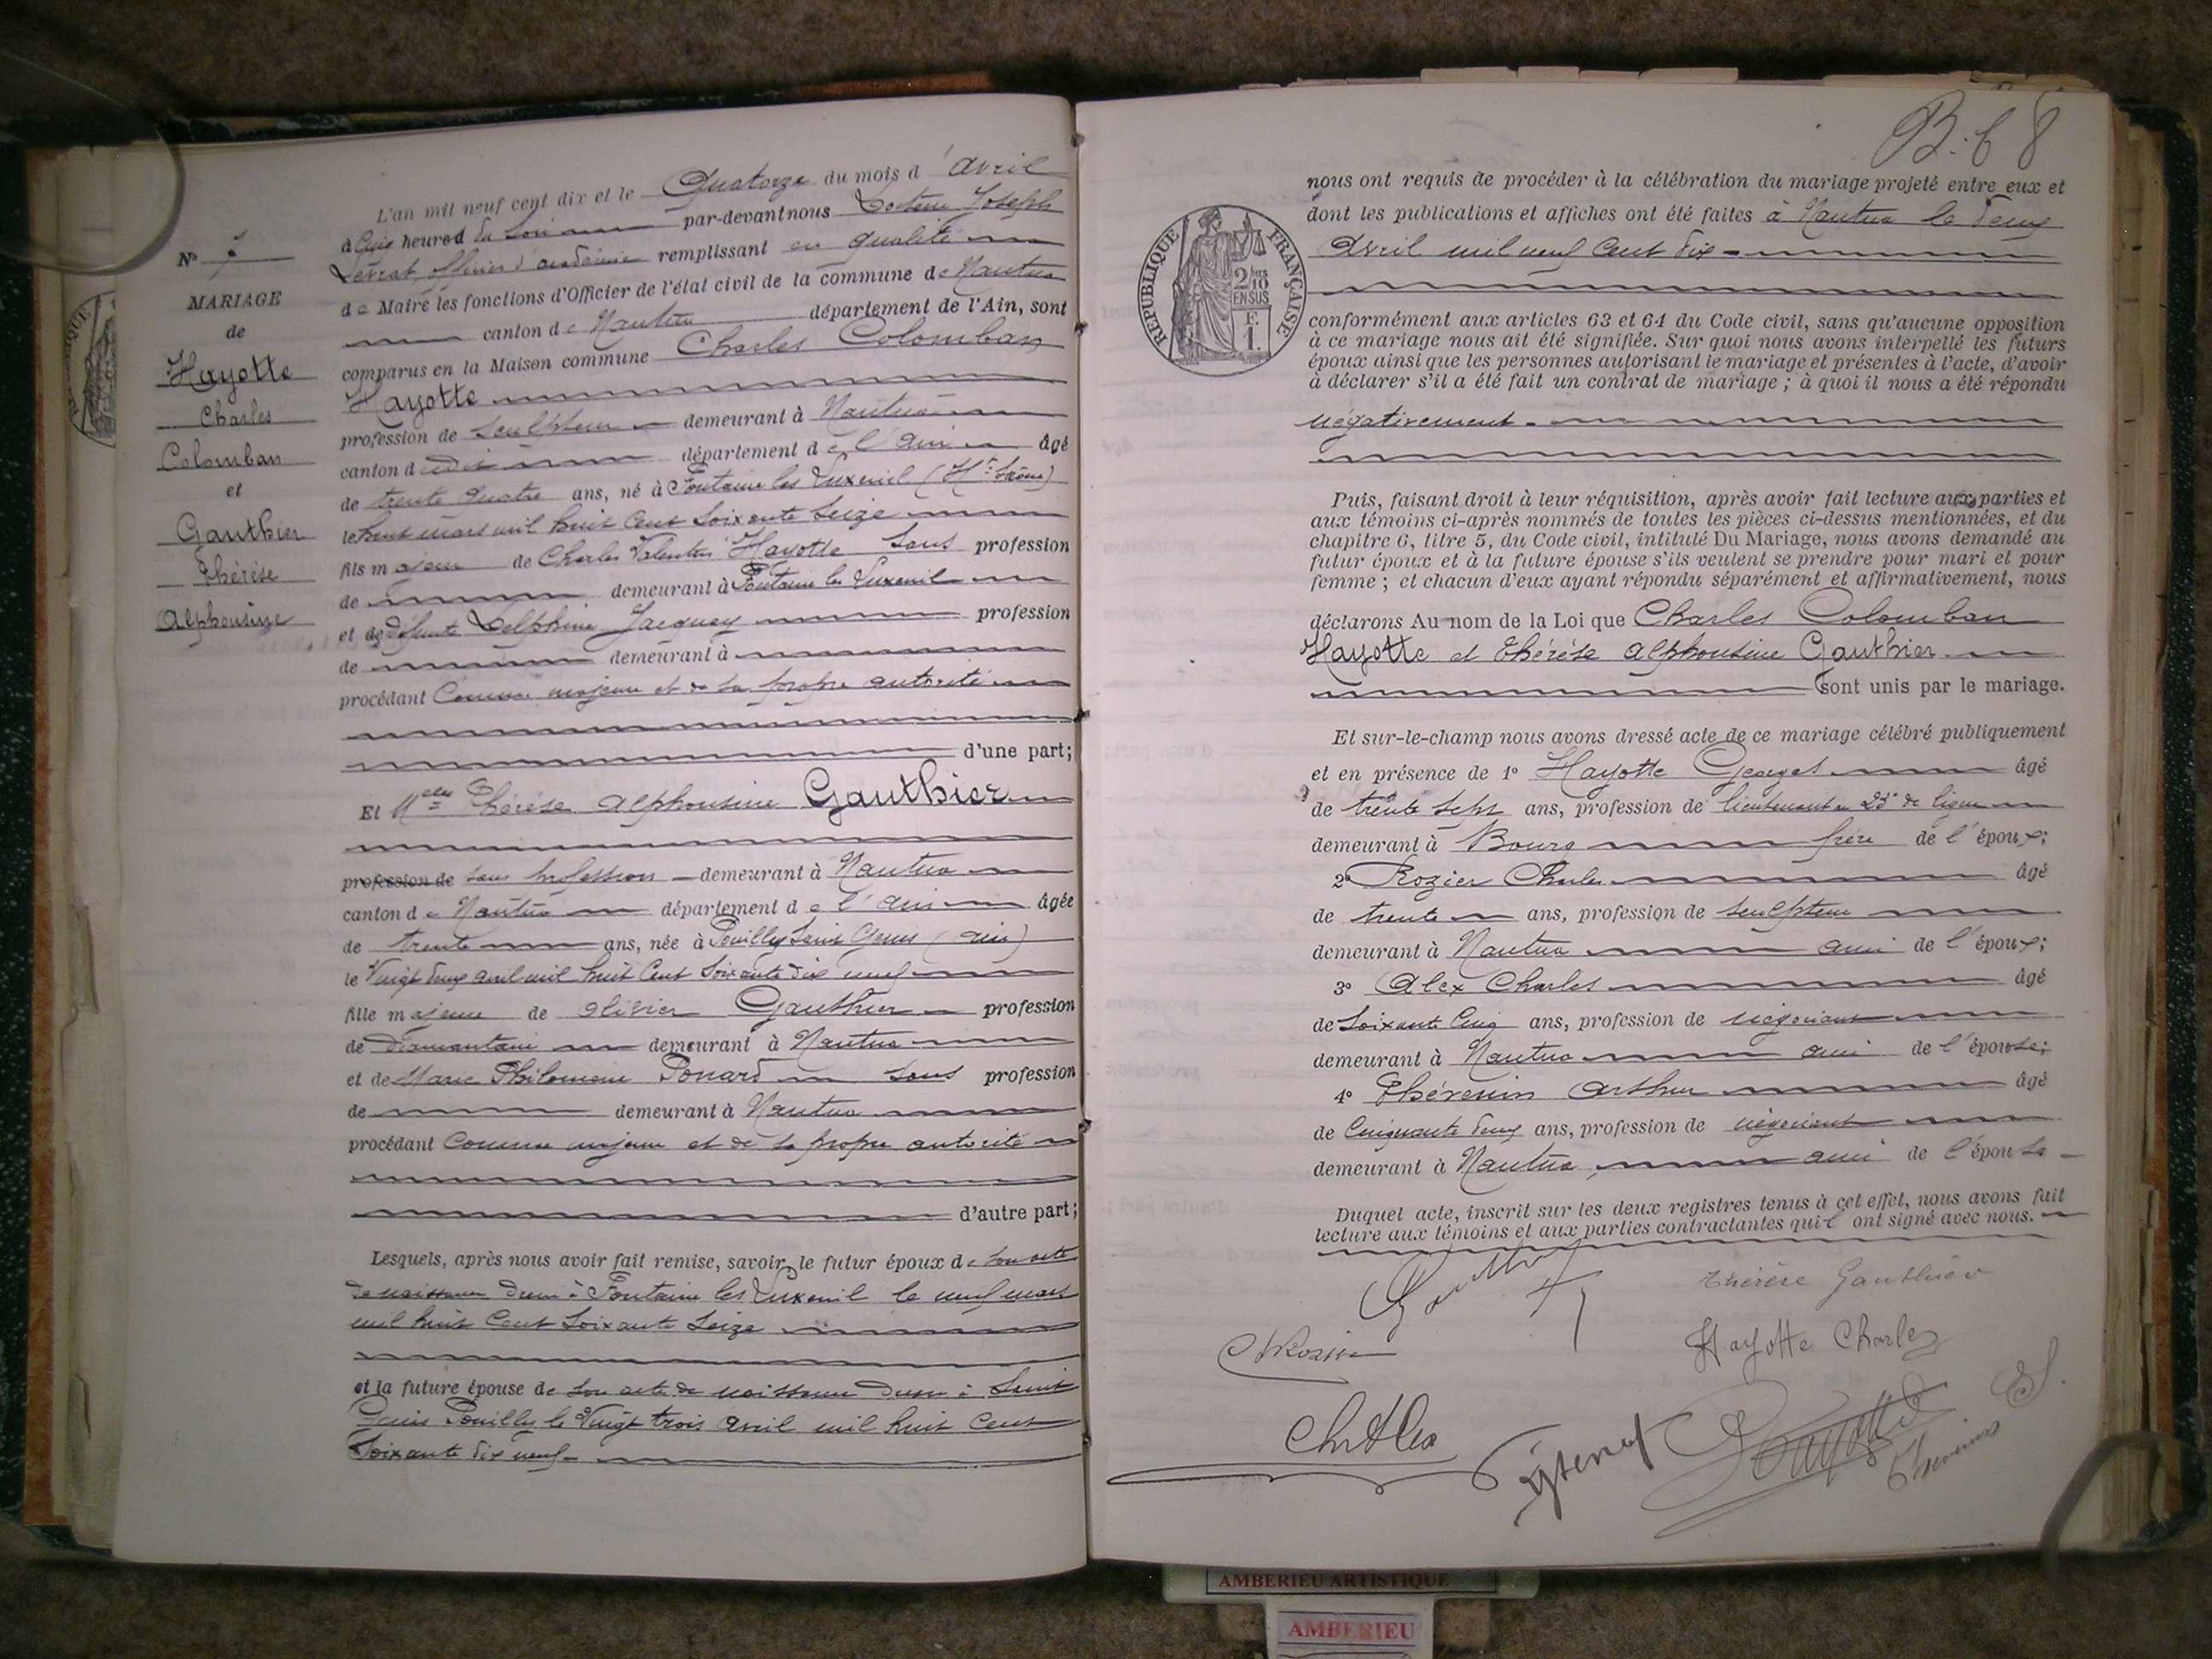 N° 7
MARIAGE
de
Hayotte
Charles
Colomban
et
Gauthier
Thérèse
Alphonsine
L'an mil neuf cent dix et le Quatorze du mois d'avril
à Cinq heures du Soir par-devant nous Docteur Joseph
Levrat, officier d'académie remplissant en qualité
de Maire les fonctions d'Officier de l'état civil de la commune de Nantua
canton de Nantua département de l'Ain, sont
comparus en la Maison commune Charles Colomban
Hayotte
profession de Sculpteur demeurant à Nantua
canton dudit département de l'Ain âgé
de trente quatre ans, né à Fontaine les Luxeuil (Hte Saône)
le huit mars mil huit Cent Soixante Seize
fils majeur de Charles Valentin Hayotte Sans profession
de demeurant à Fontaine les Luxeuil
et de défunte Delphine Jacquey profession
de demeurant à
procédant Comme majeur et de sa propre autorité
d'une part;
Et Melle Thérèse Alphonsine Gauthier
profession de sans profession demeurant à Nantua
canton de Nantua département de l'Ain âgée
de trente ans, née à Pouilly Saint Genis (Ain)
le Vingt deux avril mil huit Cent Soixante dix neuf
fille majeure de Olivier Gauthier profession
de Diamantaire demeurant à Nantua
et de Marie Philomène Ponard Sans profession
de demeurant à Nantua
procédant Comme majeure et de sa propre autorité
d'autre part;
Lesquels, après nous avoir fait remise, savoir, le futur époux de son acte
de naissance Dressé à Fontaine les Luxeuil le neuf mars
mil huit Cent Soixante Seize
et la future épouse de son acte de naissance Dressé à Saint
Genis Pouilly le Vingt trois avril mil huit Cent
Soixante dix neuf
B. 6 8
RÉPUBLIQUE FRANÇAISE
2/10
EN SUS
F.
1.
nous ont requis de procéder à la célébration du mariage projeté entre eux et
dont les publications et affiches ont été faites à Nantua le deux
Avril mil neuf Cent dix
conformément aux articles 63 et 64 du Code civil, sans qu'aucune opposition
à ce mariage nous ait été signifiée. Sur quoi nous avons interpellé les futurs
époux ainsi que les personnes autorisant le mariage et présentes à l'acte, d'avoir
à déclarer s'il a été fait un contrat de mariage ; à quoi il nous a été répondu
négativement.
Puis, faisant droit à leur réquisition, après avoir fait lecture aux parties et
aux témoins ci-après nommés de toutes les pièces ci-dessus mentionnées, et du
chapitre 6, titre 5, du Code civil, intitulé Du Mariage, nous avons demandé au
futur époux et à la future épouse s'ils veulent se prendre pour mari et pour
femme ; et chacun d'eux ayant répondu séparément et affirmativement, nous
déclarons Au nom de la Loi que Charles Colomban
Hayotte et Thérèse Alphonsine Gauthier
sont unis par le mariage.
Et sur-le-champ nous avons dressé acte de ce mariage célébré publiquement
et en présence de 1° Hayotte Georges âgé
de trente sept ans, profession de lieutenant au 23e de ligne
demeurant à Bourg frère de l'époux;
2° Rozier Charles âgé
de trente ans, profession de sculpteur
demeurant à Nantua ami de l'époux;
3° Alex Charles âgé
de Soixante Cinq ans, profession de négociant
demeurant à Nantua ami de l'épouse;
4° Thévenin Arthur âgé
de Cinquante deux ans, profession de négociant
demeurant à Nantua ami de l'épouse
Duquel acte, inscrit sur les deux registres tenus à cet effet, nous avons fait
lecture aux témoins et aux parties contractantes qui ont signé avec nous.
Thérèse Gauthier
Hayotte Charles
Ch Alex
GHayotte
AMBERIEU ARTISTIQUE
AMBERIEU